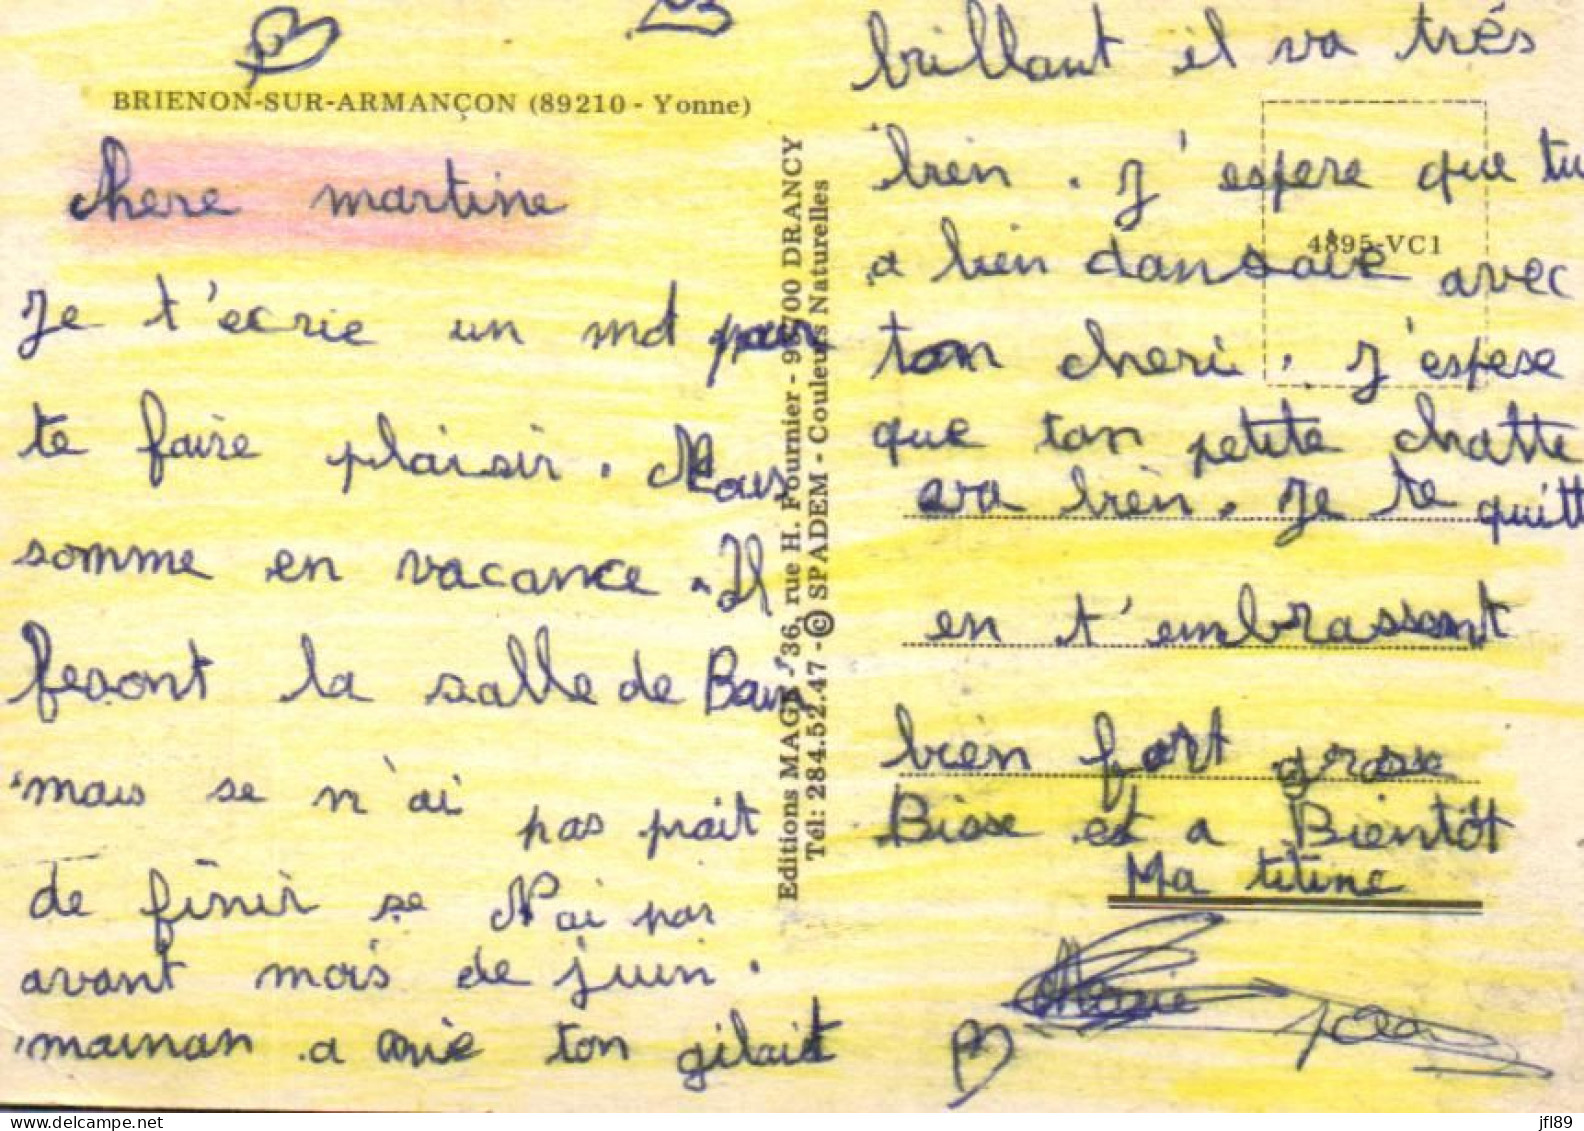 BRIENON-SUR-ARMANÇON (89210 - Yonne)
chere martine
Je t'ecrie un mot pour
te faire plaisir. Nous
somme en vacance. Il
feront la salle de Bain
mais se n'ai pas prait
de finir se N'ai pas
avant mois de juin.
maman a mie ton gilait
Editions MAGE - 36, rue H. Fournier - 93700 DRANCY
Tél: 284.52.47 - © SPADEM - Couleurs Naturelles
brillant il va trés
bien. J'espere que tu
4895-VC1
a bien dansaie avec
ton cheri. J'espere
que ton petite chatte
va bien. Je te quitt
en t'embrassent
bien fort grosse
Bisse et a Bientôt
Ma titine
Marie
jfl89